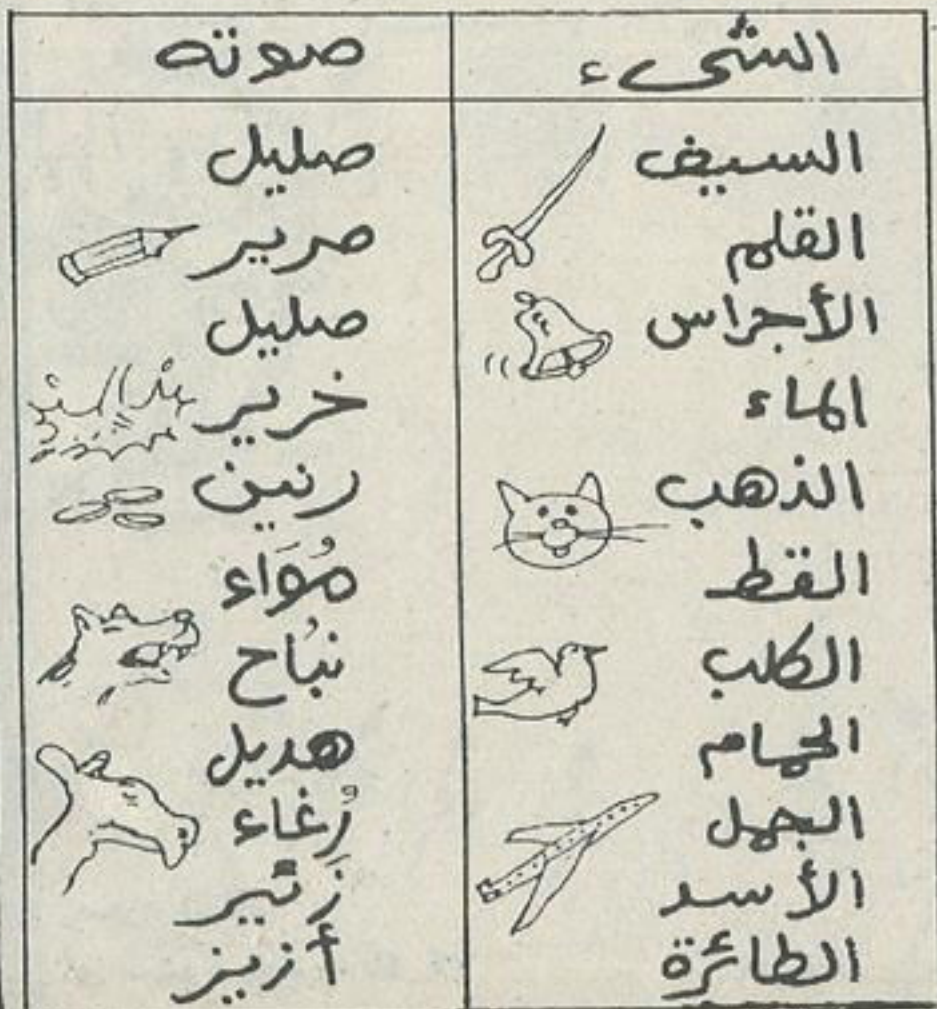 الشىء صوته
السيف صليل
القلم صرير
الأجراس صليل
الماء خرير
الذهب رنين
القط مُوَاء
الكلب نبُاح
الحمام هديل
الجمل رُغاء
الأسد زَئير
الطائرة أزيز